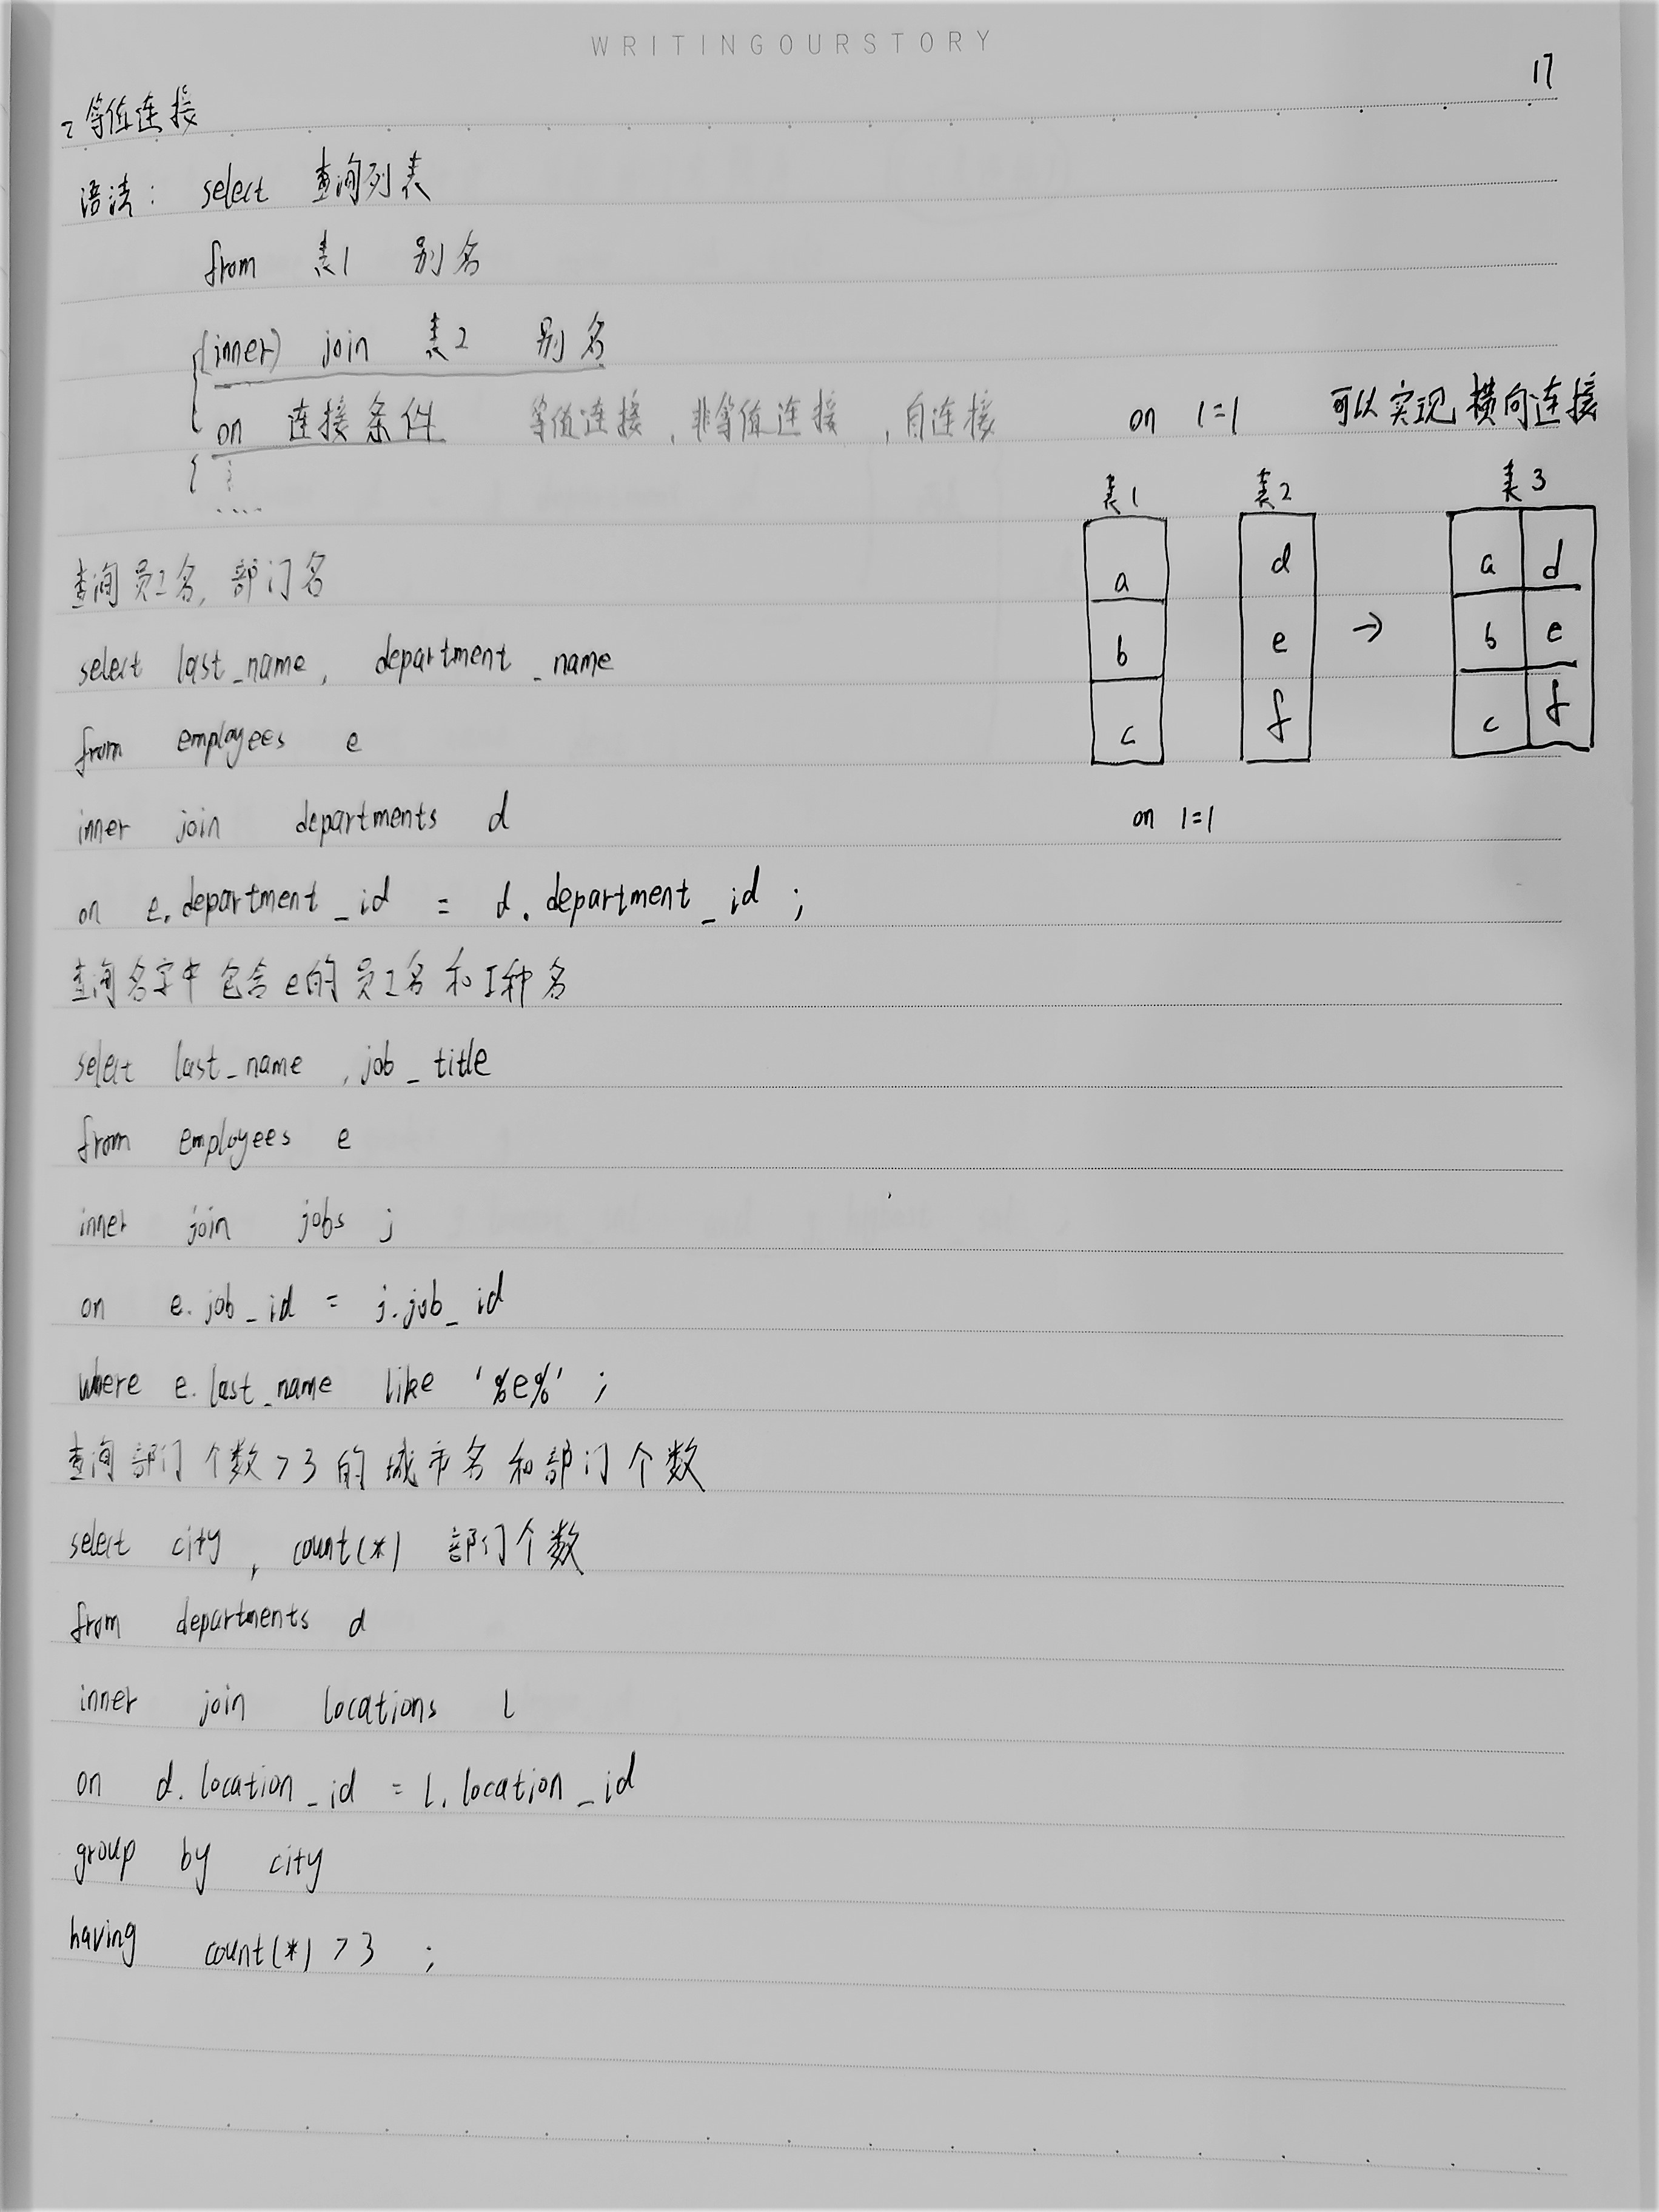 WRITINGOURSTORY
17
2 等值连接
语法: select 查询列表
from 表1 别名
(inner) join 表2 别名
on 连接条件 等值连接, 非等值连接, 自连接 on 1=1 可以实现横向连接
....
表1 表2 表3
a d a d
b e → b e
c f c f
on 1=1
查询员工名, 部门名
select last_name, department_name
from employees e
inner join departments d
on e.department_id = d.department_id ;
查询名字中包含e的员工名和工种名
select last_name, job_title
from employees e
inner join jobs j
on e.job_id = j.job_id
where e.last_name like '%e%' ;
查询部门个数>3的城市名和部门个数
select city, count(*) 部门个数
from departments d
inner join locations l
on d.location_id = l.location_id
group by city
having count(*) >3 ;